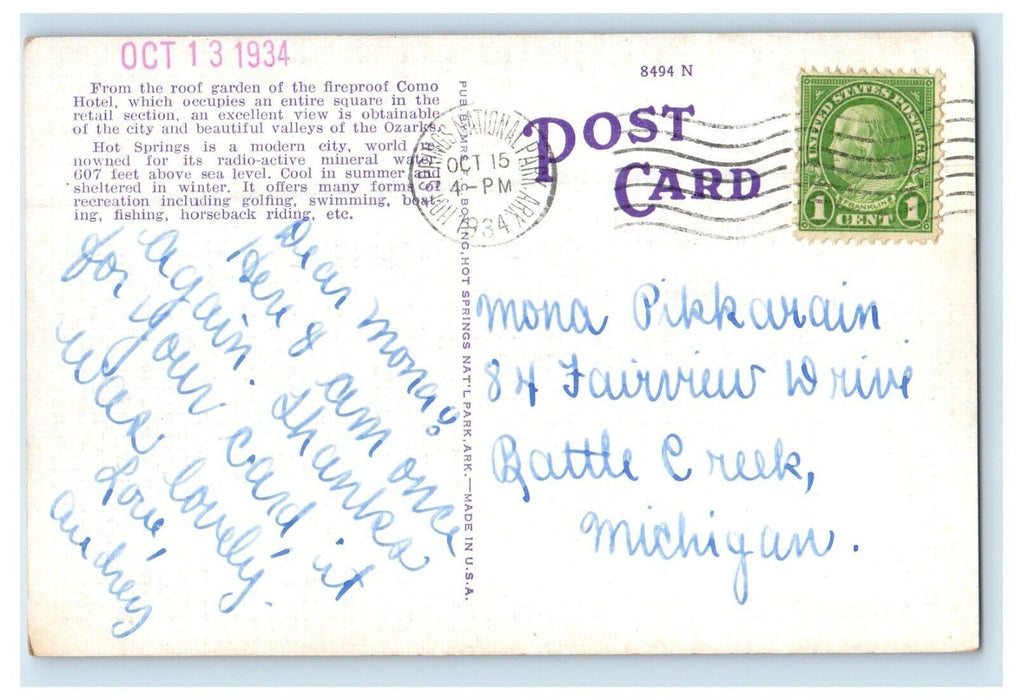 OCT 13 1934
From the roof garden of the fireproof Como
Hotel, which occupies an entire square in the
retail section, an excellent view is obtainable
of the city and beautiful valleys of the Ozarks.
Hot Springs is a modern city, world
nowned for its radio-active mineral
607 feet above sea level. Cool in summer
sheltered in winter. It offers many forms
recreation including golfing, swimming, boat-
ing, fishing, horseback riding, etc.
Dear Mona:
Here I am once
again. Thanks
for your card it
was lovely.
Love,
Audrey
BOWING, HOT SPRINGS NAT'L PARK, ARK.—MADE IN U.S.A.
HOT SPRINGS NATIONAL PARK, ARK.
OCT 15
4-PM
1934
8494 N
POST
CARD
UNITED STATES POSTAGE
FRANKLIN
1 CENT 1
Mona Pikkarain
84 Fairview Drive
Battle Creek,
Michigan.